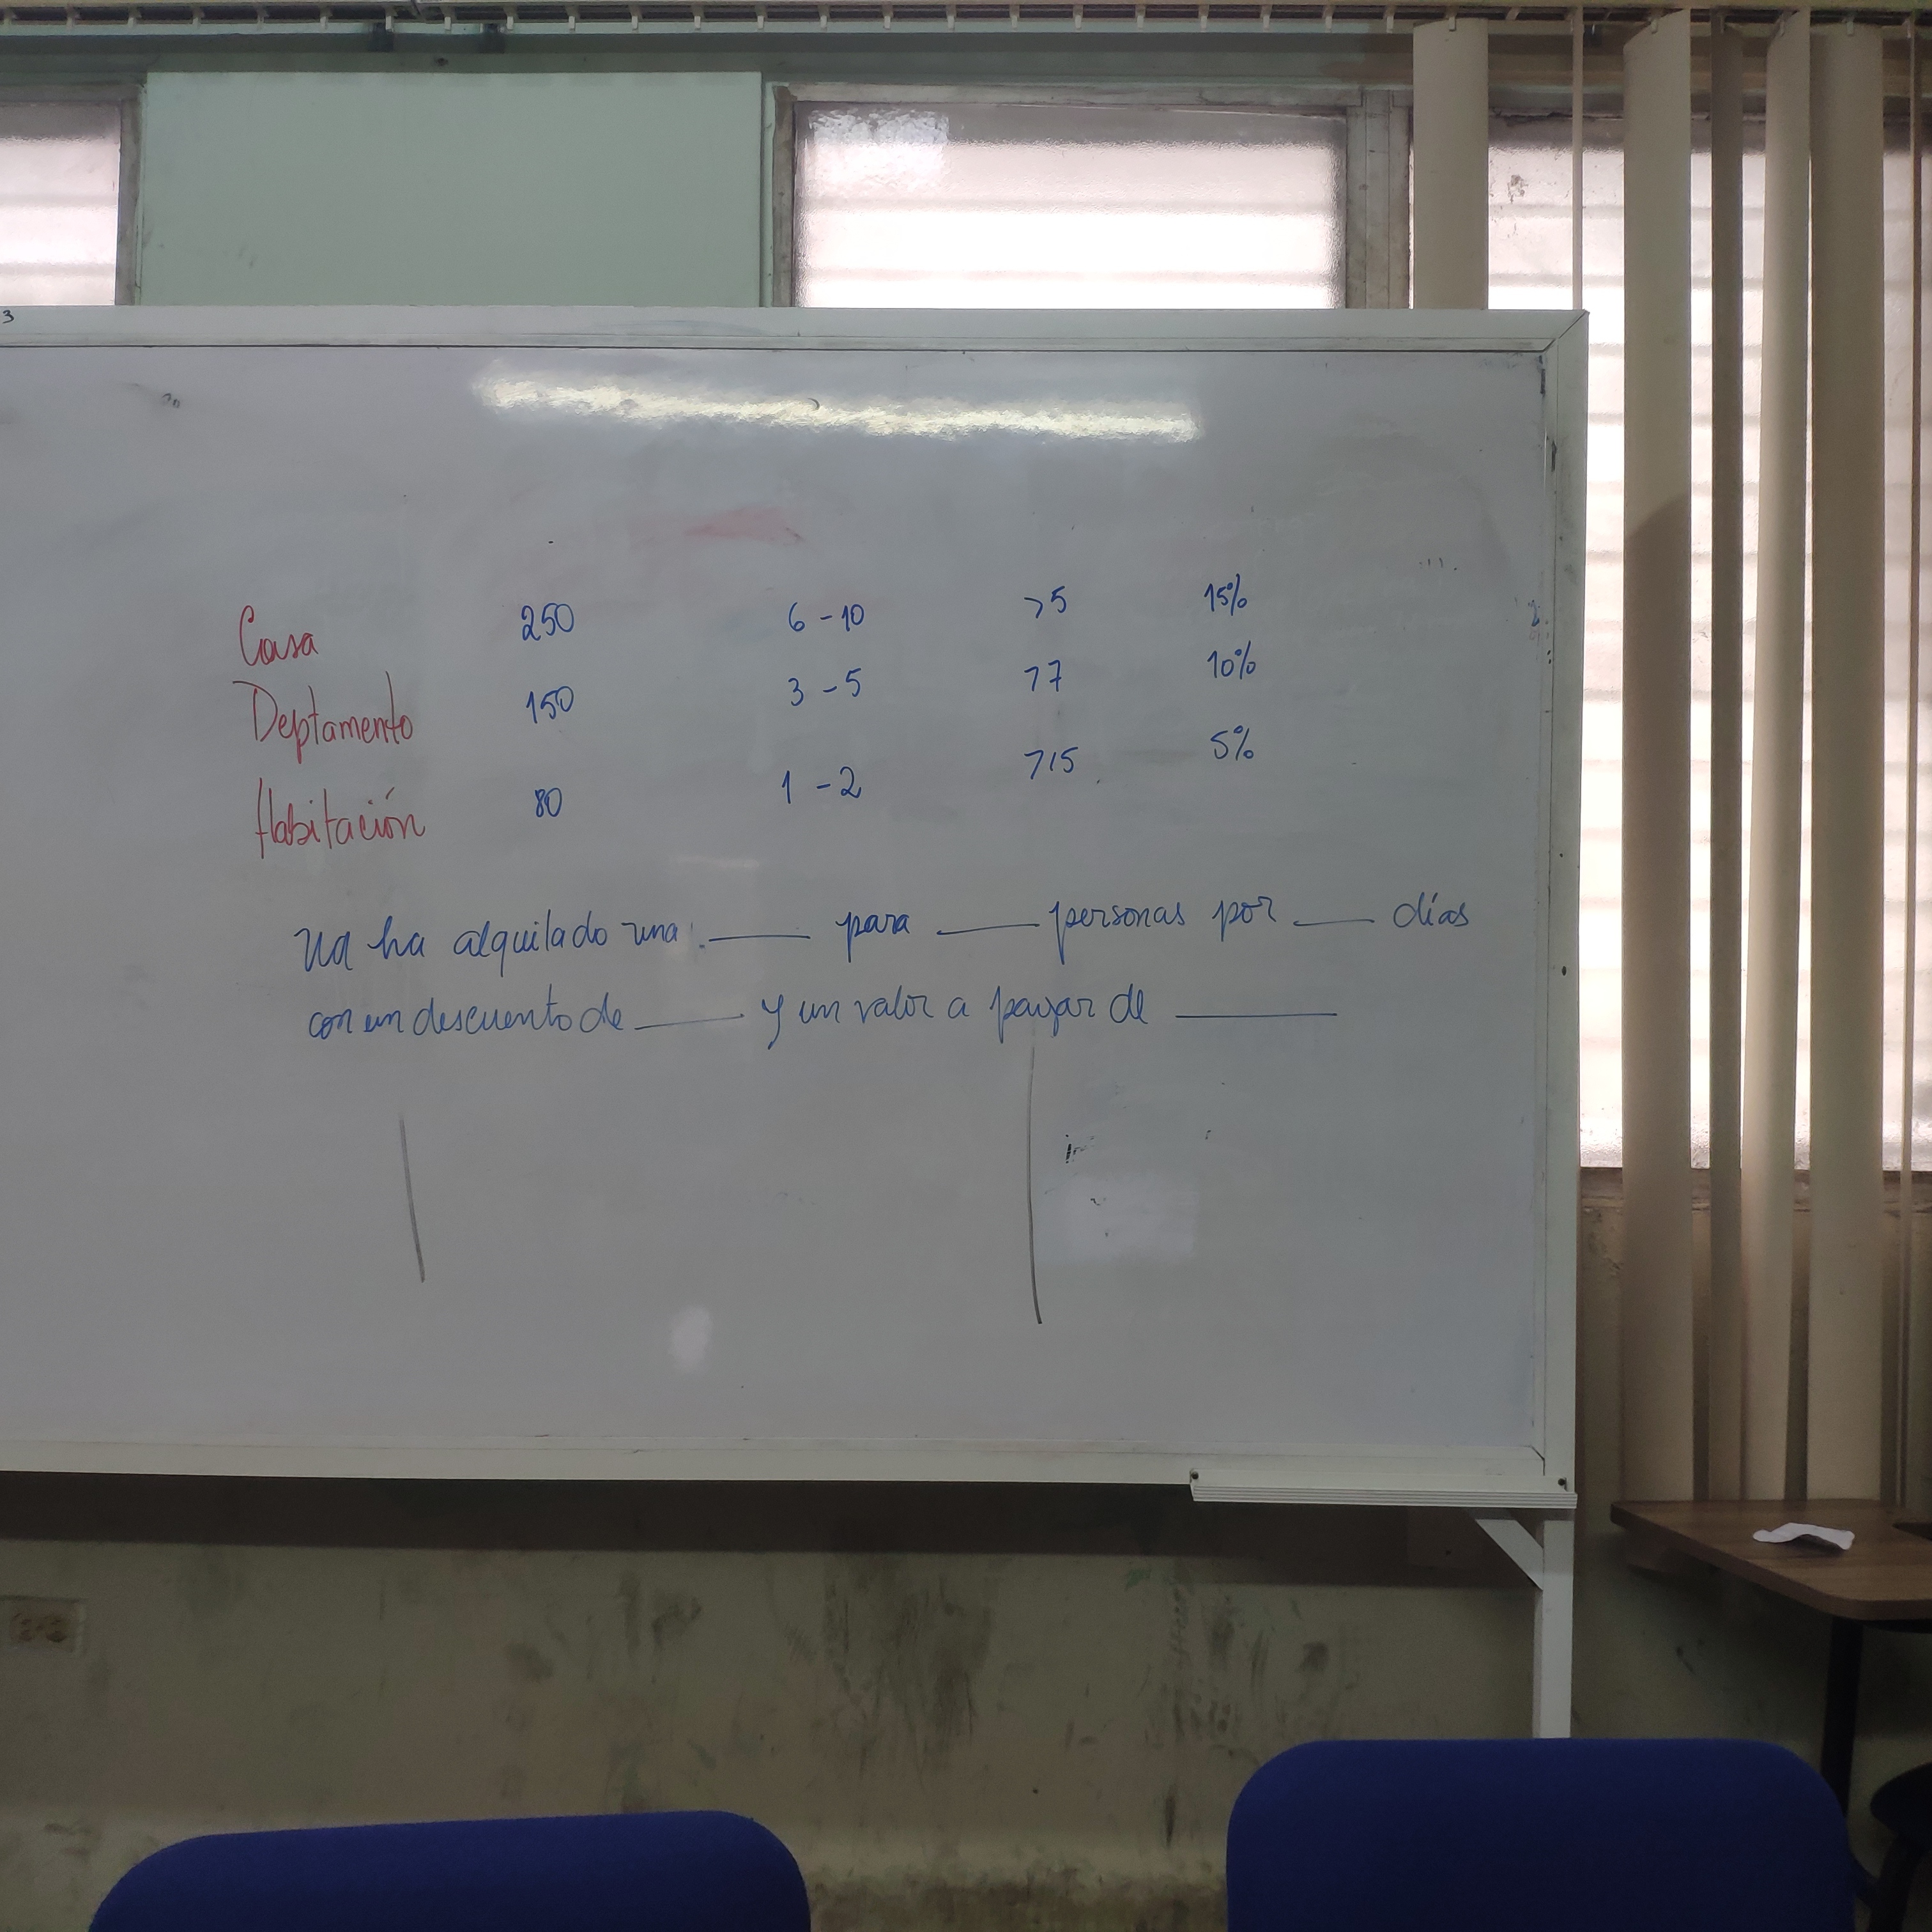 3
Casa 250 6 - 10 >5 15%
Deptamento 150 3 - 5 >7 10%
Habitación 80 1 - 2 >15 5%
Ud ha alquilado una: ____ para ____ personas por ____ días
con un descuento de ____ y un valor a pagar de ____